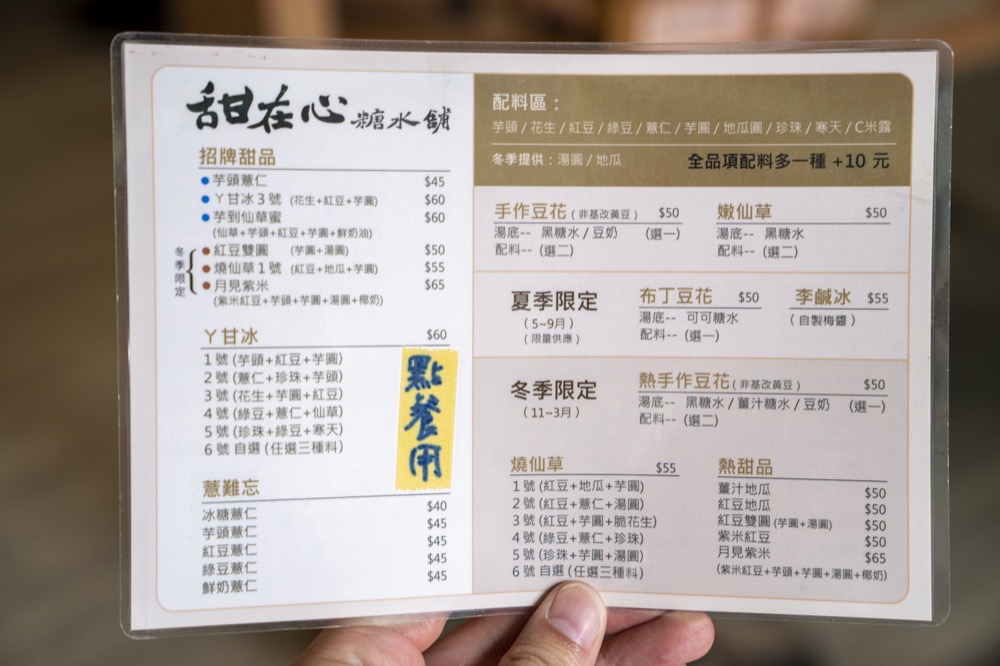 甜在心 糖水舖
招牌甜品
芋頭薏仁 $45
ㄚ甘冰3號 (花生+紅豆+芋圓) $60
芋到仙草蜜 $60
(仙草+芋頭+紅豆+芋圓+鮮奶油)
冬季限定
紅豆雙圓 (芋圓+湯圓) $50
燒仙草1號 (紅豆+地瓜+芋圓) $55
月見紫米 $65
(紫米紅豆+芋頭+芋圓+湯圓+椰奶)
ㄚ甘冰 $60
1號 (芋頭+紅豆+芋圓)
2號 (薏仁+珍珠+芋頭)
3號 (花生+芋圓+紅豆)
4號 (綠豆+薏仁+仙草)
5號 (珍珠+綠豆+寒天)
6號 自選 (任選三種料)
點餐用
薏難忘
冰糖薏仁 $40
芋頭薏仁 $45
紅豆薏仁 $45
綠豆薏仁 $45
鮮奶薏仁 $45
配料區：
芋頭/花生/紅豆/綠豆/薏仁/芋圓/地瓜圓/珍珠/寒天/C米露
冬季提供：湯圓/地瓜 全品項配料多一種 +10 元
手作豆花 (非基改黃豆) $50
湯底-- 黑糖水/豆奶 (選一)
配料-- (選二)
嫩仙草 $50
湯底-- 黑糖水
配料-- (選二)
夏季限定
(5~9月)
(限量供應)
布丁豆花 $50
湯底-- 可可糖水
配料-- (選一)
李鹹冰 $55
(自製梅醬)
冬季限定
(11~3月)
熱手作豆花 (非基改黃豆) $50
湯底-- 黑糖水/薑汁糖水/豆奶 (選一)
配料-- (選二)
燒仙草 $55
1號 (紅豆+地瓜+芋圓)
2號 (紅豆+薏仁+湯圓)
3號 (紅豆+芋圓+脆花生)
4號 (綠豆+薏仁+珍珠)
5號 (珍珠+芋圓+湯圓)
6號 自選 (任選三種料)
熱甜品
薑汁地瓜 $50
紅豆地瓜 $50
紅豆雙圓 (芋圓+湯圓) $50
紫米紅豆 $50
月見紫米 $65
(紫米紅豆+芋頭+芋圓+湯圓+椰奶)